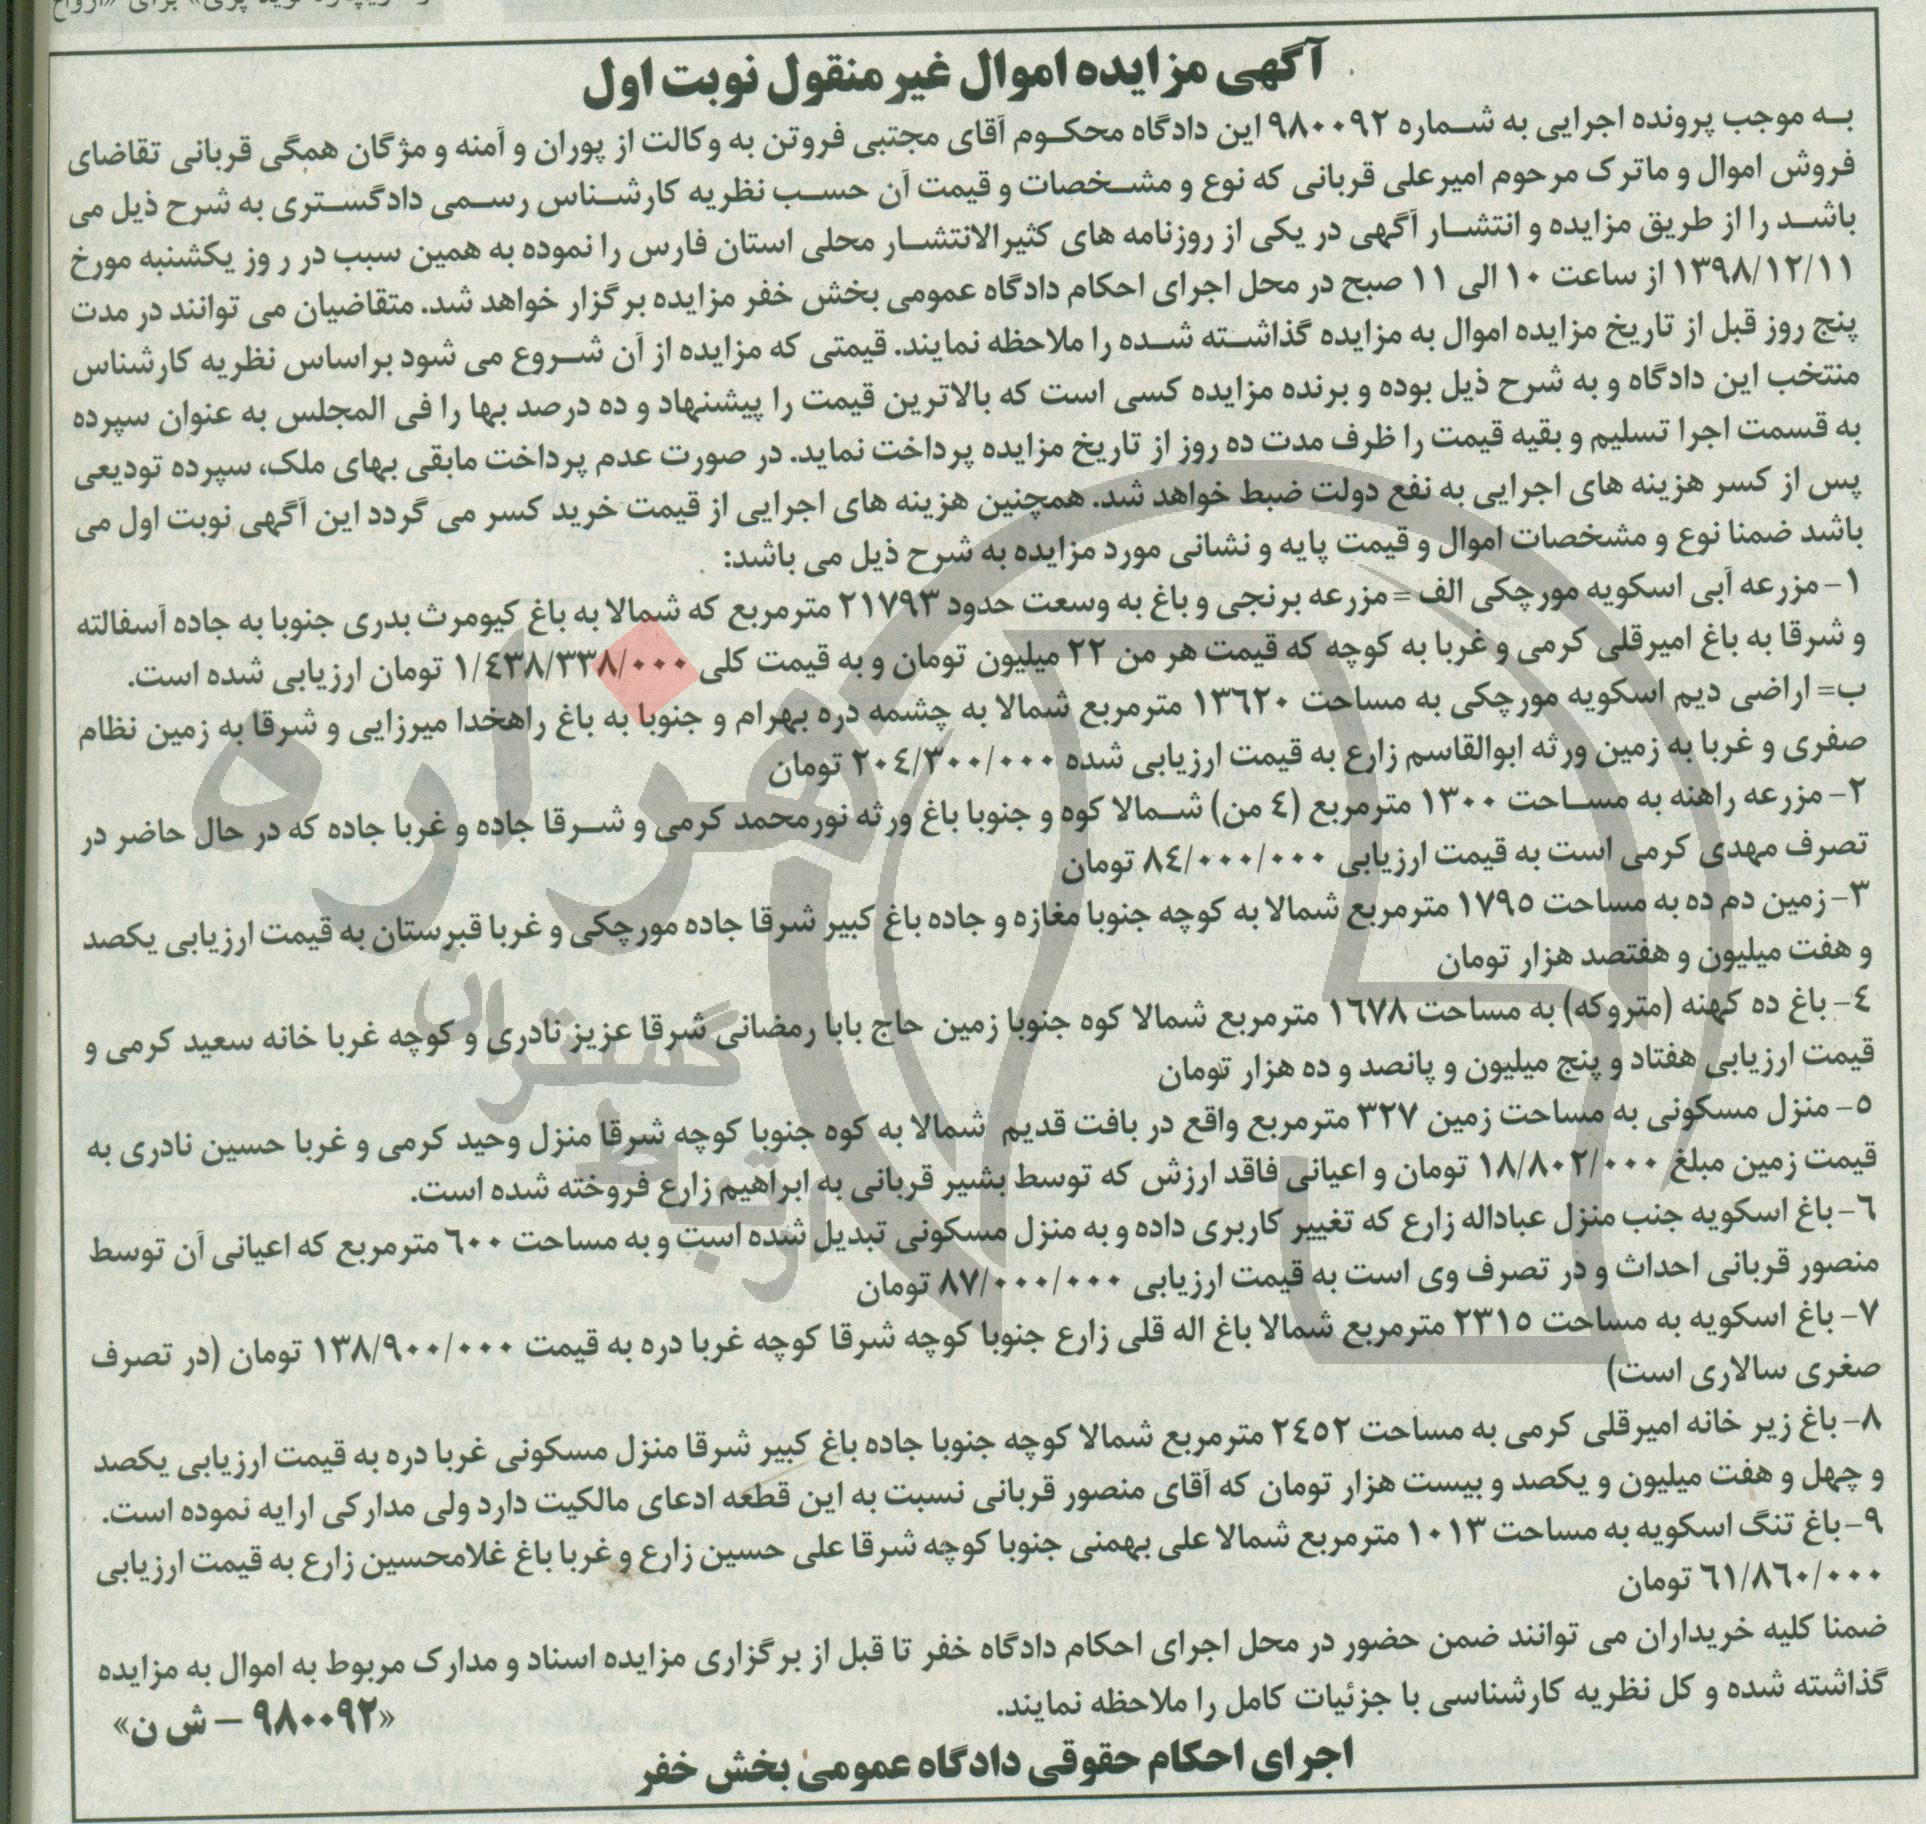 آگهی مزایده اموال غیر منقول نوبت اول
به موجب پرونده اجرایی به شماره ۹۸۰۰۹۲ این دادگاه محکوم آقای مجتبی فروتن به وکالت از پوران و آمنه و مژگان همگی قربانی تقاضای
فروش اموال و ماترک مرحوم امیرعلی قربانی که نوع و مشخصات و قیمت آن حسب نظریه کارشناس رسمی دادگستری به شرح ذیل می
باشد را از طریق مزایده و انتشار آگهی در یکی از روزنامه های کثیرالانتشار محلی استان فارس را نموده به همین سبب در روز یکشنبه مورخ
۱۳۹۸/۱۲/۱۱ از ساعت ۱۰ الی ۱۱ صبح در محل اجرای احکام دادگاه عمومی بخش خفر مزایده برگزار خواهد شد. متقاضیان می توانند در مدت
پنج روز قبل از تاریخ مزایده اموال به مزایده گذاشته شده را ملاحظه نمایند. قیمتی که مزایده از آن شروع می شود براساس نظریه کارشناس
منتخب این دادگاه و به شرح ذیل بوده و برنده مزایده کسی است که بالاترین قیمت را پیشنهاد و ده درصد بها را فی المجلس به عنوان سپرده
به قسمت اجرا تسلیم و بقیه قیمت را ظرف مدت ده روز از تاریخ مزایده پرداخت نماید. در صورت عدم پرداخت مابقی بهای ملک، سپرده تودیعی
پس از کسر هزینه های اجرایی به نفع دولت ضبط خواهد شد. همچنین هزینه های اجرایی از قیمت خرید کسر می گردد این آگهی نوبت اول می
باشد ضمنا نوع و مشخصات اموال و قیمت پایه و نشانی مورد مزایده به شرح ذیل می باشد:
۱- مزرعه آبی اسکویه مورچکی الف= مزرعه برنجی و باغ به وسعت حدود ۲۱۷۹۳ مترمربع که شمالا به باغ کیومرث بدری جنوبا به جاده آسفالته
و شرقا به باغ امیرقلی کرمی و غربا به کوچه که قیمت هر من ۲۲ میلیون تومان و به قیمت کلی ۱/۴۳۸/۳۳۸/۰۰۰ تومان ارزیابی شده است.
ب= اراضی دیم اسکویه مورچکی به مساحت ۱۳۶۲۰ مترمربع شمالا به چشمه دره بهرام و جنوبا به باغ راهخدا میرزایی و شرقا به زمین نظام
صفری و غربا به زمین ورثه ابوالقاسم زارع به قیمت ارزیابی شده ۲۰۴/۳۰۰/۰۰۰ تومان
۲- مزرعه راهنه به مساحت ۱۳۰۰ مترمربع (۴ من) شمالا کوه و جنوبا باغ ورثه نورمحمد کرمی و شرقا جاده و غربا جاده که در حال حاضر در
تصرف مهدی کرمی است به قیمت ارزیابی ۸۴/۰۰۰/۰۰۰ تومان
۳- زمین دم ده به مساحت ۱۷۹۵ مترمربع شمالا به کوچه جنوبا مغازه و جاده باغ کبیر شرقا جاده مورچکی و غربا قبرستان به قیمت ارزیابی یکصد
و هفت میلیون و هفتصد هزار تومان
۴- باغ ده کهنه (متروکه) به مساحت ۱۶۷۸ مترمربع شمالا کوه جنوبا زمین حاج بابا رمضانی شرقا عزیز نادری و کوچه غربا خانه سعید کرمی و
قیمت ارزیابی هفتاد و پنج میلیون و پانصد و ده هزار تومان
۵- منزل مسکونی به مساحت زمین ۳۲۷ مترمربع واقع در بافت قدیم شمالا به کوه جنوبا کوچه شرقا منزل وحید کرمی و غربا حسین نادری به
قیمت زمین مبلغ ۱۸/۸۰۲/۰۰۰ تومان و اعیانی فاقد ارزش که توسط بشیر قربانی به ابراهیم زارع فروخته شده است.
۶- باغ اسکویه جنب منزل عباداله زارع که تغییر کاربری داده و به منزل مسکونی تبدیل شده است و به مساحت ۶۰۰ مترمربع که اعیانی آن توسط
منصور قربانی احداث و در تصرف وی است به قیمت ارزیابی ۸۷/۰۰۰/۰۰۰ تومان
۷- باغ اسکویه به مساحت ۲۳۱۵ مترمربع شمالا باغ اله قلی زارع جنوبا کوچه شرقا کوچه غربا دره به قیمت ۱۳۸/۹۰۰/۰۰۰ تومان (در تصرف
صغری سالاری است)
۸- باغ زیر خانه امیرقلی کرمی به مساحت ۲۴۵۲ مترمربع شمالا کوچه جنوبا جاده باغ کبیر شرقا منزل مسکونی غربا دره به قیمت ارزیابی یکصد
و چهل و هفت میلیون و یکصد و بیست هزار تومان که آقای منصور قربانی نسبت به این قطعه ادعای مالکیت دارد ولی مدارکی ارایه نموده است.
۹- باغ تنگ اسکویه به مساحت ۱۰۱۳ مترمربع شمالا علی بهمنی جنوبا کوچه شرقا علی حسین زارع و غربا باغ غلامحسین زارع به قیمت ارزیابی
۶۱/۸۶۰/۰۰۰ تومان
ضمنا کلیه خریداران می توانند ضمن حضور در محل اجرای احکام دادگاه خفر تا قبل از برگزاری مزایده اسناد و مدارک مربوط به اموال به مزایده
گذاشته شده و کل نظریه کارشناسی با جزئیات کامل را ملاحظه نمایند.
«۹۸۰۰۹۲ – ش ن»
اجرای احکام حقوقی دادگاه عمومی بخش خفر
هزاره
گستران